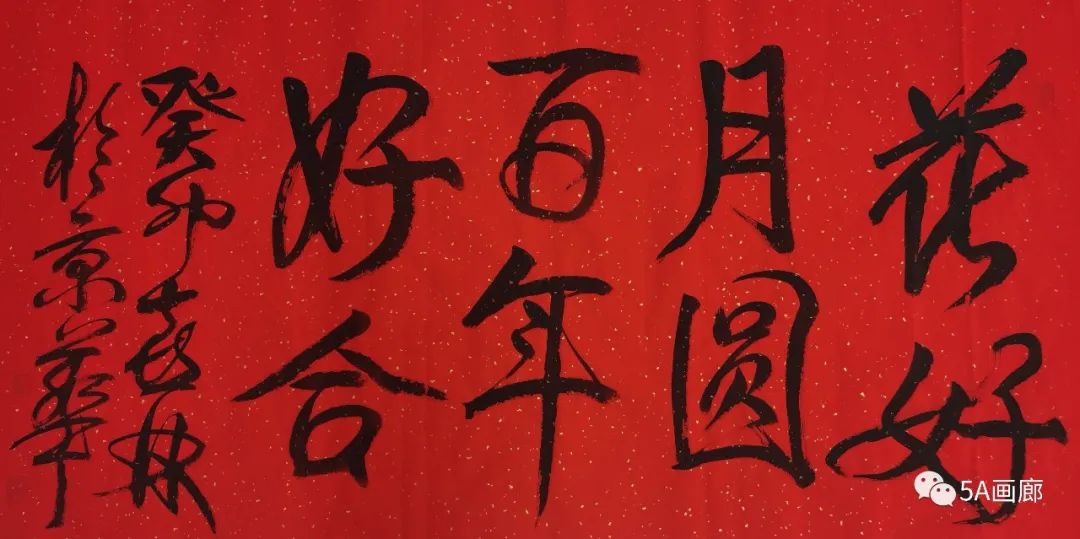 花好
月圆
百年
好合
癸卯志林
於京華
5A画廊